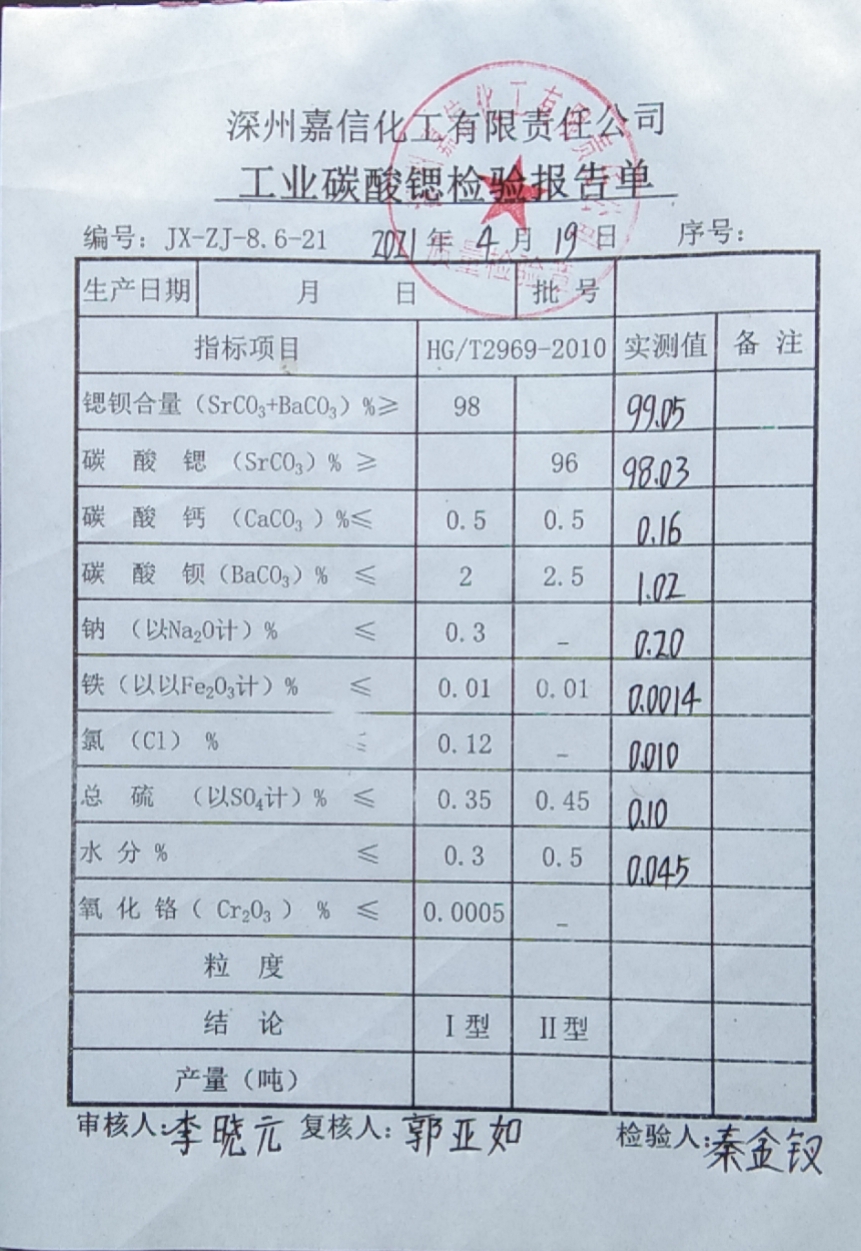 深州嘉信化工有限责任公司
工业碳酸锶检验报告单
编号：JX-ZJ-8.6-21 2021年4月19日 序号：
生产日期 月 日 批号
指标项目 HG/T2969-2010 实测值 备注
锶钡合量（SrCO₃+BaCO₃）%≥ 98 99.05
碳酸锶（SrCO₃）% ≥ 96 98.03
碳酸钙（CaCO₃）%≤ 0.5 0.5 0.16
碳酸钡（BaCO₃）% ≤ 2 2.5 1.02
钠（以Na₂O计）% ≤ 0.3 – 0.20
铁（以以Fe₂O₃计）% ≤ 0.01 0.01 0.0014
氯（Cl）% 0.12 – 0.010
总硫（以SO₄计）% ≤ 0.35 0.45 0.10
水分% ≤ 0.3 0.5 0.045
氧化铬（Cr₂O₃）% ≤ 0.0005 –
粒度
结论 Ⅰ型 Ⅱ型
产量（吨）
审核人：李晓元 复核人：郭亚如 检验人：秦金钗